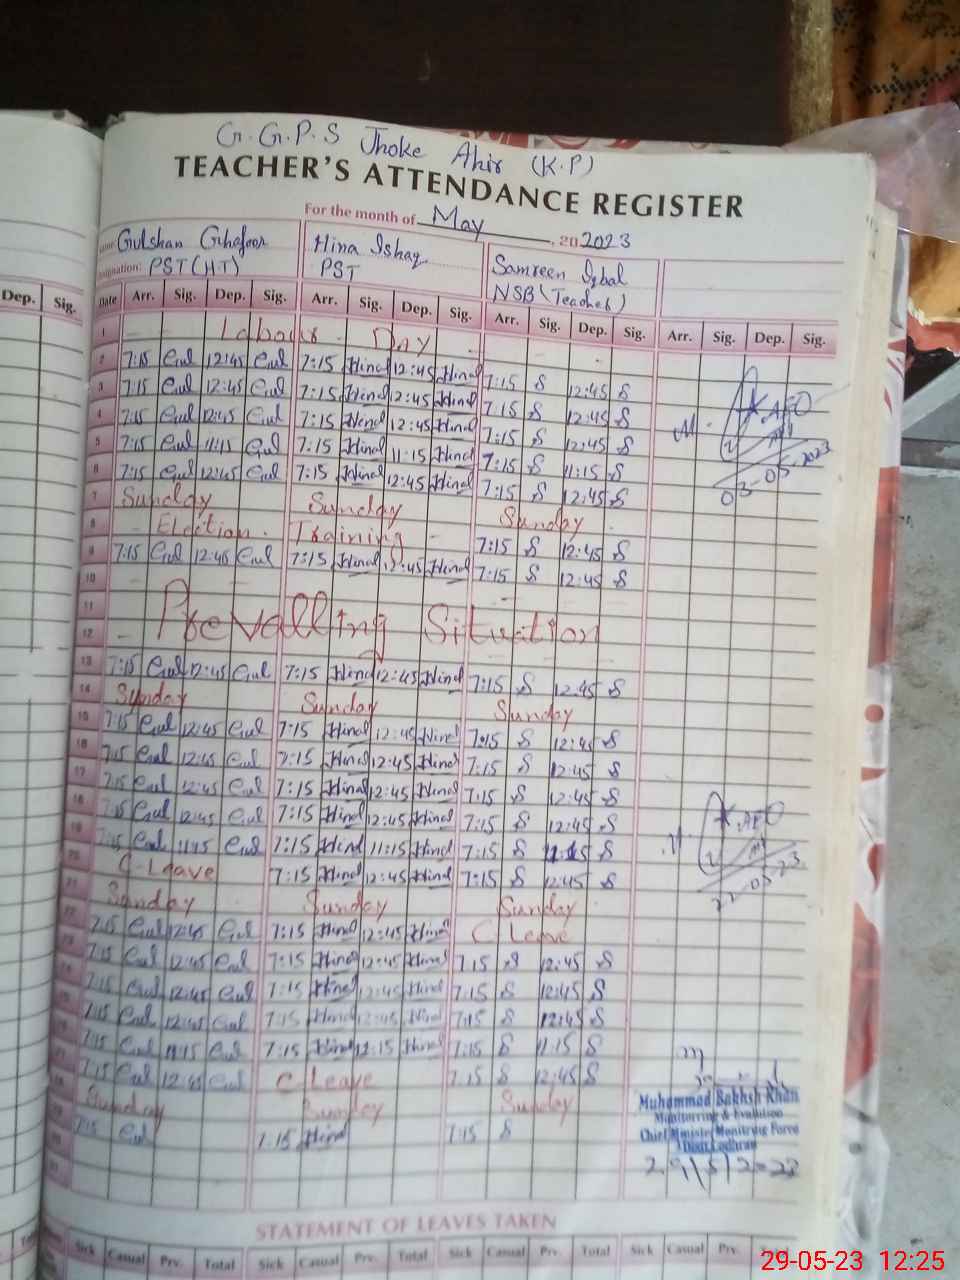 G.G.P.S Jhoke Ahir (K.P)
TEACHER'S ATTENDANCE REGISTER
For the month of May, 20 2023
Gulshan Ghafoor Hina Ishaq Samreen Iqbal
Designation: PST (HT) PST NSB (Teacher)
Dep. Sig. Date Arr. Sig. Dep. Sig. Arr. Sig. Dep. Sig. Arr. Sig. Dep. Sig. Arr. Sig. Dep. Sig.
1 Labour Day
2 7:15 Gul 12:45 Gul 7:15 Hina 12:45 Hina 7:15 S 12:45 S
3 7:15 Gul 12:45 Gul 7:15 Hina 12:45 Hina 7:15 S 12:45 S
4 7:15 Gul 12:45 Gul 7:15 Hina 12:45 Hina 7:15 S 12:45 S
5 7:15 Gul 11:15 Gul 7:15 Hina 11:15 Hina 7:15 S 11:15 S
6 7:15 Gul 12:45 Gul 7:15 Hina 12:45 Hina 7:15 S 12:45 S
AEO
03-05-2023
7 Sunday Sunday Sunday
8 Election Training 7:15 S 12:45 S
9 7:15 Gul 12:45 Gul 7:15 Hina 12:45 Hina 7:15 S 12:45 S
10
11 Prevalling Situation
12
13 7:15 Gul 12:45 Gul 7:15 Hina 12:45 Hina 7:15 S 12:45 S
14 Sunday Sunday Sunday
15 7:15 Gul 12:45 Gul 7:15 Hina 12:45 Hina 7:15 S 12:45 S
16 7:15 Gul 12:45 Gul 7:15 Hina 12:45 Hina 7:15 S 12:45 S
17 7:15 Gul 12:45 Gul 7:15 Hina 12:45 Hina 7:15 S 12:45 S
18 7:15 Gul 12:45 Gul 7:15 Hina 12:45 Hina 7:15 S 12:45 S
19 7:15 Gul 11:15 Gul 7:15 Hina 11:15 Hina 7:15 S 11:15 S
20 C-Leave 7:15 Hina 12:45 Hina 7:15 S 12:45 S
AEO
22-05-23
21 Sunday Sunday Sunday
22 7:15 Gul 12:45 Gul 7:15 Hina 12:45 Hina C Leave
23 7:15 Gul 12:45 Gul 7:15 Hina 12:45 Hina 7:15 S 12:45 S
24 7:15 Gul 12:45 Gul 7:15 Hina 12:45 Hina 7:15 S 12:45 S
25 7:15 Gul 12:45 Gul 7:15 Hina 12:45 Hina 7:15 S 12:45 S
26 7:15 Gul 11:15 Gul 7:15 Hina 12:15 Hina 7:15 S 11:15 S
27 7:15 Gul 12:45 Gul C Leave 7:15 S 12:45 S
28 Sunday Sunday Sunday
29 7:15 Gul 7:15 Hina 7:15 S
Muhammad Bakhsh Khan
Monitorring & Evalution
Chief Minister Monitring Force
Lodhran
29/5/2023
STATEMENT OF LEAVES TAKEN
Sick Casual Prv. Total Sick Casual Prv. Total Sick Casual Prv. Total Sick Casual Prv.
29-05-23 12:25